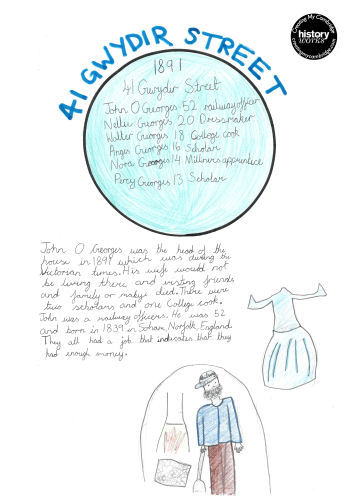 Creating My Cambridge
history
works
creatingmycambridge.com
41 GWYDIR STREET
1891
41 Gwydir Street
John O Georges 52 railway officer
Nellie Georges 20 Dressmaker
Walter Georges 18 College cook
Anges Georges 16 Scholar
Nora Georges 14 Millners apprentice
Percy Georges 13 Scholar
John O Georges was the head of the
house in 1891 which was during the
Victorian times. His wife would not
be living there and visting friends
and family or maby died. There were
two scholars and one College cook.
John was a railway officers. He was 52
and born in 1839 in Soham, Norfolk, England.
They all had a job that indicates that they
had enough money.